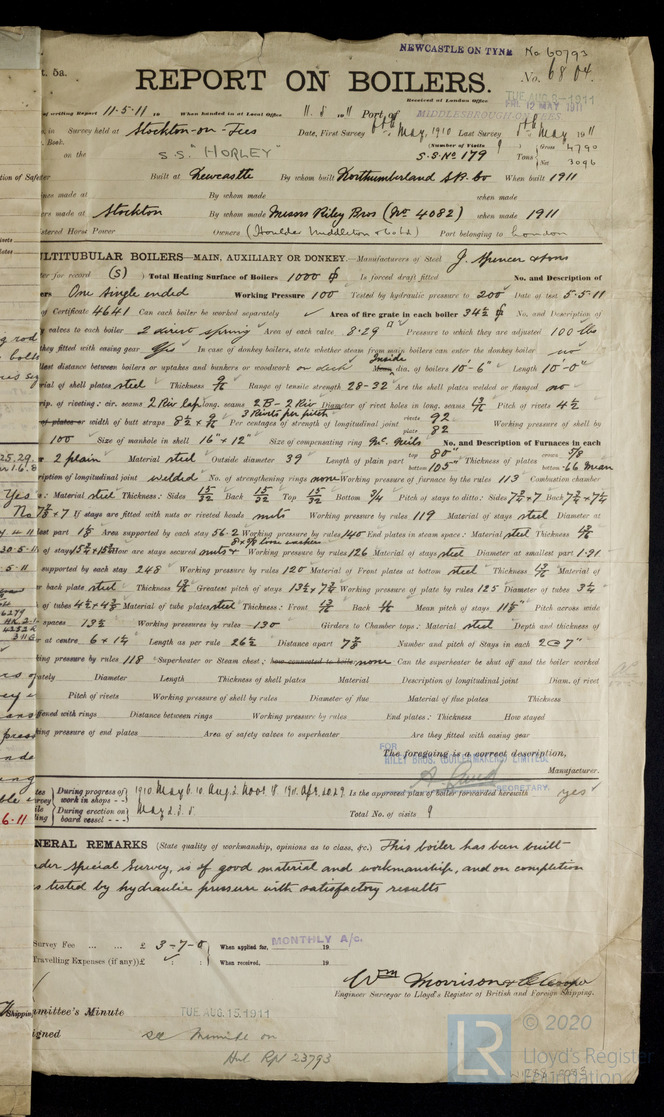 NEWCASTLE ON TYNE No 60793
t. 5a.
REPORT ON BOILERS.
No. 6804.
Received at London Office
TUE AUG 8-1911
FRI. 12 MAY 1911
of writing Report 11.5.11 19 When handed in at Local Office 11.5.1911 Port of MIDDLESBROUGH-ON-TEES
in Survey held at Stockton-on-Tees Date, First Survey 6th May, 1910 Last Survey 8th May 1911
Book.
(Number of Visits 9 )
on the S.S. "HORLEY" S.S. No 179 Tons Gross 4790 Net 3096
Built at Newcastle By whom built Northumberland S.B. Co When built 1911
ines made at By whom made when made
ers made at Stockton By whom made Messrs Riley Bros (No 4082) when made 1911
istered Horse Power Owners (Houlder Middleton & Co Ltd) Port belonging to London
ULTITUBULAR BOILERS—MAIN, AUXILIARY OR DONKEY.—Manufacturers of Steel J. Spencer & Sons
ter for record (S) ) Total Heating Surface of Boilers 1000 Is forced draft fitted No. and Description of
ers One single ended Working Pressure 100 Tested by hydraulic pressure to 200 Date of test 5.5.11
of Certificate 4641 Can each boiler be worked separately Area of fire grate in each boiler 34½ No. and Description of
y valves to each boiler 2 direct spring Area of each valve 8.29 Pressure to which they are adjusted 100 lbs
they fitted with easing gear Yes In case of donkey boilers, state whether steam from main boilers can enter the donkey boiler no
llest distance between boilers or uptakes and bunkers or woodwork on deck Inside dia. of boilers 10'-6" Length 10'-0"
rial of shell plates steel Thickness 9/16 Range of tensile strength 28-32 Are the shell plates welded or flanged no
rip. of riveting: cir. seams 2 Riv lap long. seams 2B-2 Riv Diameter of rivet holes in long. seams 13/16 Pitch of rivets 4½
3 Rivets per pitch
of plates or width of butt straps 8½ x 9/16 Per centages of strength of longitudinal joint rivets 92 plate 82 Working pressure of shell by
100 Size of manhole in shell 16" x 12" Size of compensating ring McNeils No. and Description of Furnaces in each
2 plain Material steel Outside diameter 39 Length of plain part top 80" bottom 105" Thickness of plates crown 7/8 bottom .66 mean
ription of longitudinal joint welded No. of strengthening rings none Working pressure of furnace by the rules 113 Combustion chamber
s: Material steel Thickness: Sides 15/32 Back 15/32 Top 15/32 Bottom 3/4 Pitch of stays to ditto: Sides 7¾ x 7 Back 7¾ x 7¼
7⅜ x 7 If stays are fitted with nuts or riveted heads nuts Working pressure by rules 119 Material of stays steel Diameter at
llest part 1⅜ Area supported by each stay 56.2 Working pressure by rules 140 End plates in steam space: Material steel Thickness
of stays How are stays secured nuts & Working pressure by rules 126 Material of stays steel Diameter at smallest part 1.91
supported by each stay 248 Working pressure by rules 120 Material of Front plates at bottom steel Thickness 13/16 Material of
er back plate steel Thickness Greatest pitch of stays 13½ x 7¾ Working pressure of plate by rules 125 Diameter of tubes 3¼
of tubes 4½ x 4½ Material of tube plates steel Thickness: Front Back Mean pitch of stays 11½" Pitch across wide
spaces 13½ Working pressures by rules 130 Girders to Chamber tops: Material steel Depth and thickness of
er at centre 6 x 1¼ Length as per rule 26½ Distance apart 7⅜ Number and pitch of Stays in each 2 @ 7"
king pressure by rules 118 Superheater or Steam chest; how connected to boiler none Can the superheater be shut off and the boiler worked
rately Diameter Length Thickness of shell plates Material Description of longitudinal joint Diam. of rivet
Pitch of rivets Working pressure of shell by rules Diameter of flue Material of flue plates Thickness
ffened with rings Distance between rings Working pressure by rules End plates: Thickness How stayed
king pressure of end plates Area of safety valves to superheater Are they fitted with easing gear
FOR
The foregoing is a correct description,
RILEY BROS. (BOILERMAKERS) LIMITED.
Manufacturer.
SECRETARY.
During progress of work in shops - - 1910 May 6. 10 Aug. 2 Nov. 18 1911. Apl. 20. 29. Is the approved plan of boiler forwarded herewith yes
During erection on board vessel - - - May 2. 5. 8 Total No. of visits 9
NERAL REMARKS (State quality of workmanship, opinions as to class, &c.) This boiler has been built
nder special Survey, is of good material and workmanship, and on completion
s tested by hydraulic pressure with satisfactory results
Survey Fee ... ... £ 3-7-0 When applied for, MONTHLY A/c. 19
Travelling Expenses (if any) £ : : When received, 19
Wm Morrison
Engineer Surveyor to Lloyd's Register of British and Foreign Shipping.
mmittee's Minute TUE. AUG. 15. 1911
igned see Minute on
Hul Rpt 23793
LR © 2020
Lloyd's Register
Foundation